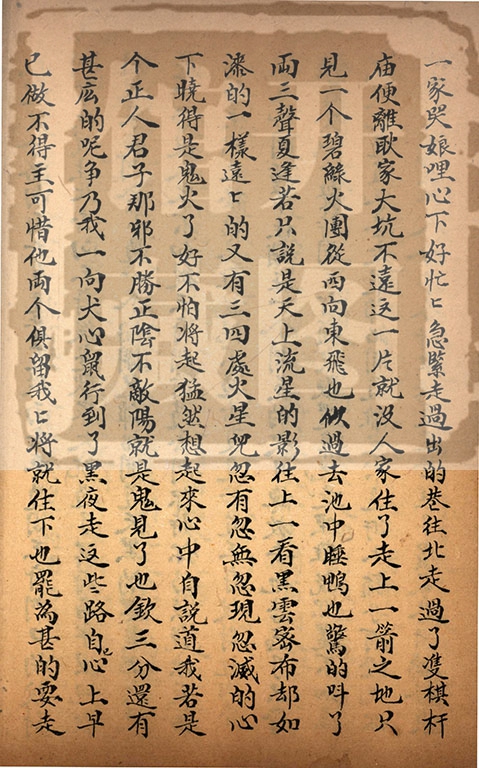 一家哭娘哩心下好忙匕急緊走過出的巷往北走過了雙棋杆
庙便離耿家大坑不遠这一片就没人家住了走上一箭之地只
見一个碧綠火團從西向東飛也似過去池中睡鴨也驚的呌了
両三聲夏逢若只說是天上流星的影往上一看黑雲密布却如
漆的一樣遠匕的又有三四處火星兒忽有忽無忽現忽滅的心
下曉得是鬼火了好不怕將起猛然想起來心中自說道我若是
个正人君子那邪不勝正陰不敵陽就是鬼見了也欽三分還有
甚庅的呢争乃我一向犬心鼠行到了黑夜走这些路自心上早
已做不得主可惜他両个俱留我匕將就住下也罷為甚的要走